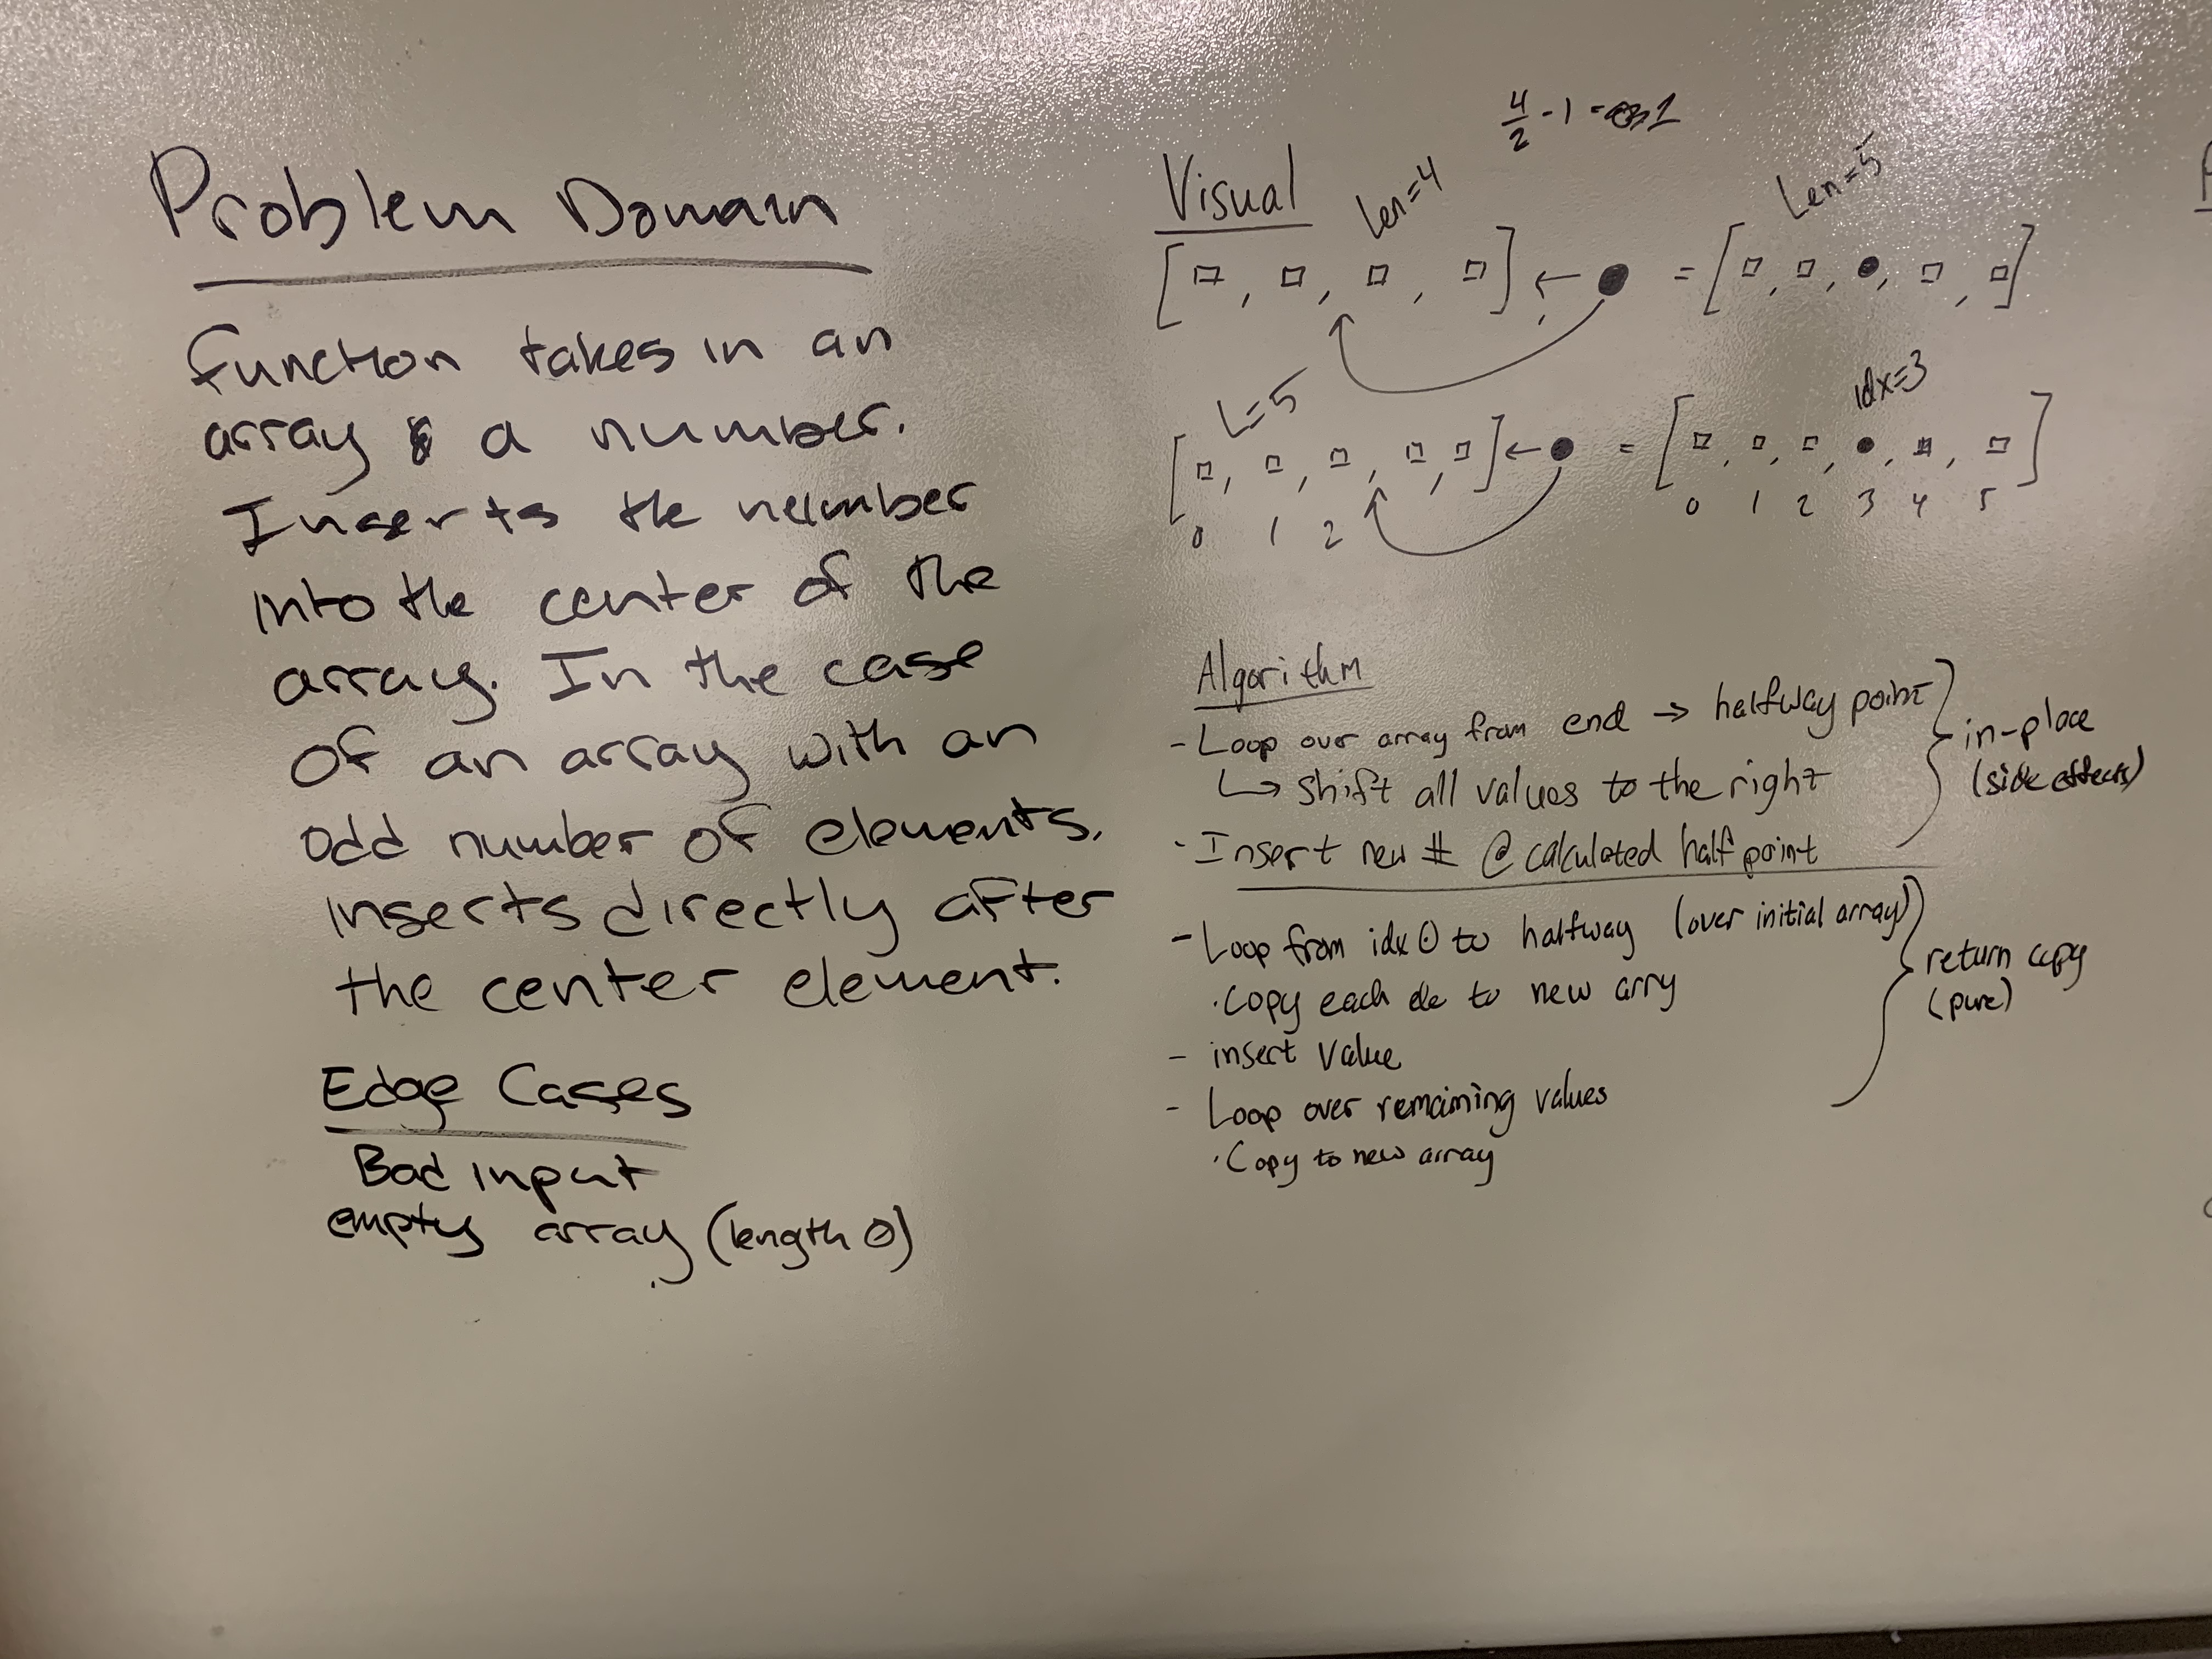 Problem Domain
Function takes in an
array & a number.
Inserts the number
into the center of the
array. In the case
of an array with an
odd number of elements,
inserts directly after
the center element.
Edge Cases
Bad input
empty array (length 0)
4/2 - 1 = 1
Visual
Len=4
Len=5
[□, □, □, □] ← ● = [□, □, ●, □, □]
L=5
idx=3
[□, □, □, □, □] ← ● = [□, □, □, ●, □, □]
0 1 2
0 1 2 3 4 5
Algorithm
- Loop over array from end → halfway point
↳ shift all values to the right
- Insert new # @ calculated halfpoint
in-place
(side effects)
- Loop from idx 0 to halfway (over initial array)
· Copy each ele to new arry
- insert value
- Loop over remaining values
· Copy to new array
return copy
(pure)